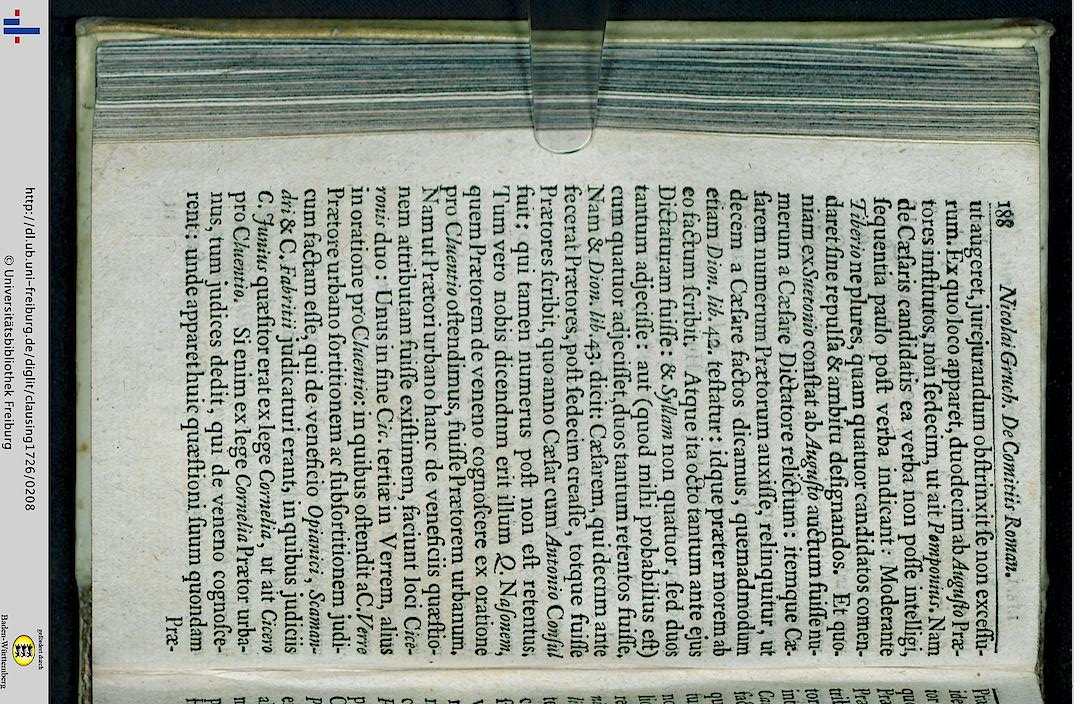 188 Nicolai Gruch. De Comitiis Roman.
ut augeret, jurejurandum obſtrinxit ſe non exceſſu-
rum. Ex quo loco apparet, duodecim ab Auguſto Præ-
tores inſtitutos, non ſedecim, ut ait Pomponius. Nam
de Cæſaris candidatis ea verba non poſſe intelligi,
ſequentia paulo poſt verba indicant: Moderante
Tiberio ne plures, quam quatuor candidatos comen-
daret ſine repulſa & ambitu deſignandos. Et quo-
niam ex Suetonio conſtat ab Auguſto auctum fuiſſe nu-
merum a Cæſare Dictatore relictum: itemque Cæ-
ſarem numerum Prætorum auxiſſe, relinquitur, ut
decem a Cæſare factos dicamus, quemadmodum
etiam Dion. lib. 42. teſtatur: idque præter morem ab
eo factum ſcribit. Atque ita octo tantum ante ejus
Dictaturam fuiſſe: & Syllam non quatuor, ſed duos
tantum adjeciſſe: aut (quod mihi probabilius eſt)
cum quatuor adjeciſſet, duos tantum retentos fuiſſe.
Nam & Dion. lib. 43. dicit: Cæſarem, qui decem ante
fecerat Prætores, poſt ſedecim creaſſe, totque fuiſſe
Prætores ſcribit, quo anno Cæſar cum Antonio Conſul
fuit: qui tamen numerus poſt non eſt retentus.
Tum vero nobis dicendum erit illum Q. Naſonem,
quem Prætorem de veneno cognoſcere ex oratione
pro Cluentio oſtendimus, fuiſſe Prætorem urbanum,
Nam ut Prætori urbano hanc de veneficiis quæſtio-
nem attributam fuiſſe exiſtimem, faciunt loci Cice-
ronis duo: Unus in fine Cic. tertiæ in Verrem, alius
in oratione pro Cluentio: in quibus oſtendit a C. Verre
Prætore urbano ſortitionem ac ſubſortitionem judi-
cum factam eſſe, qui de veneficio Opianici, Scaman-
dri & C. Fabritii judicaturi erant, in quibus judiciis
C. Junius quæſitor erat ex lege Cornelia, ut ait Cicero
pro Cluentio. Si enim ex lege Cornelia Prætor urba-
nus, tum judices dedit, qui de veneno cognoſce-
rent: unde apparet huic quæſtioni ſuum quondam
Præ-
http://dl.ub.uni-freiburg.de/diglit/clausing1726/0208
© Universitätsbibliothek Freiburg
gefördert durch
Baden-Württemberg